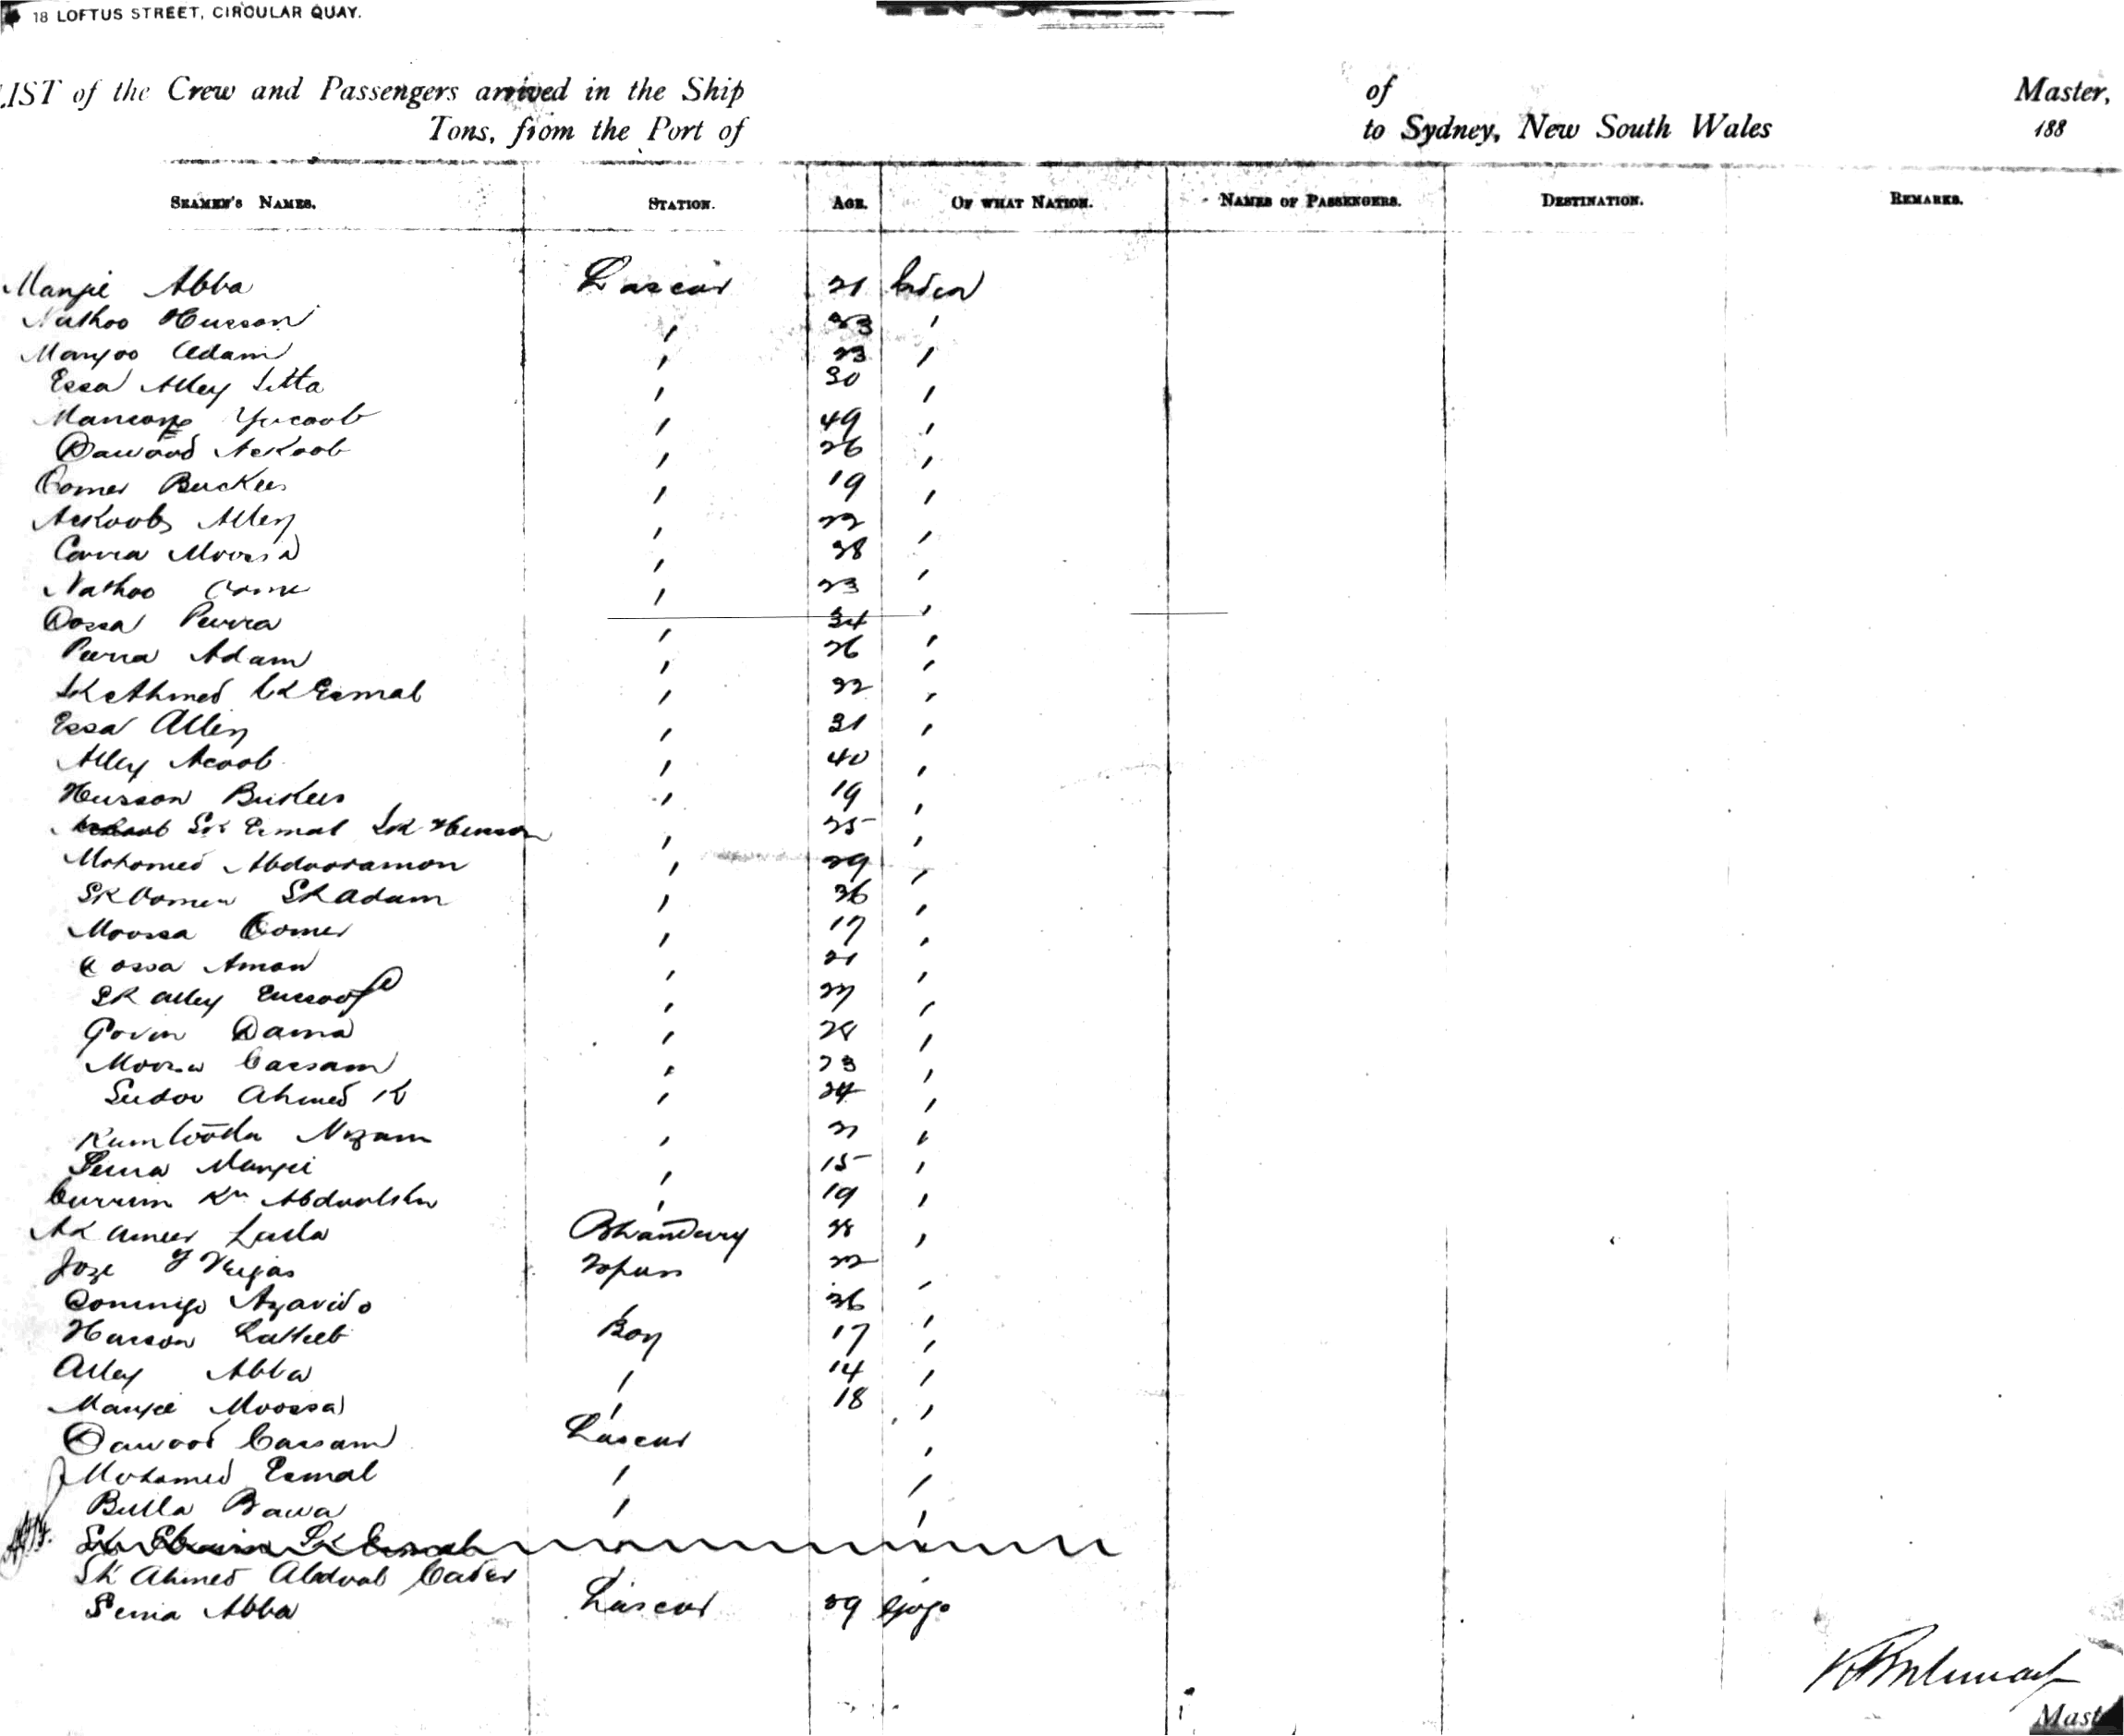 18 LOFTUS STREET, CIRCULAR QUAY.
LIST of the Crew and Passengers arrived in the Ship of Master,
Tons, from the Port of to Sydney, New South Wales 188
SEAMEN'S NAMES. STATION. AGE. OF WHAT NATION. NAMES OF PASSENGERS. DESTINATION. REMARKS.
Manjee Abba Lascar 21 India
Nathoo Husson 23 "
Manjoo Adam " 23 "
Essa Alley " 30 "
Yucoob " 49 "
Dawood Ackoob " 26 "
Oomer Buckus " 19 "
Ackoob Alley " 22 "
Moossa " 38 "
Nathoo " 23 "
Dossa Peerra " 34 "
Peerra Adam " 26 "
SK Ahmed SK Esmal " 22 "
Essa Alley " 31 "
Alley Acoob " 40 "
Husson Buckus " 19 "
SK Esmal SK Husson " 25 "
Mohomed Abdooramon " 29 "
SK Oomer SK Adam " 36 "
Moossa Oomer " 17 "
Dossa Amon " 21 "
SK Alley Eusoof " 27 "
Govin Dama " 28 "
Moosa Cassam " 23 "
Ahmed K " 24 "
Nizam " 21 "
Manjee " 15 "
Currim " 19 "
Ameer Bhandary 38 "
Joze Topas 22
Domingo Azavido " 36 "
Hasson Boy 17 "
Alley Abba " 14 "
Manjee Moossa " 18 "
Dawood Cassam Lascar "
Mohamed Esmal " "
Bulla Bawa " "
SK Esmal
SK Ahmed Abdool Cader " "
Abba Lascar 29 Gogo
Mast